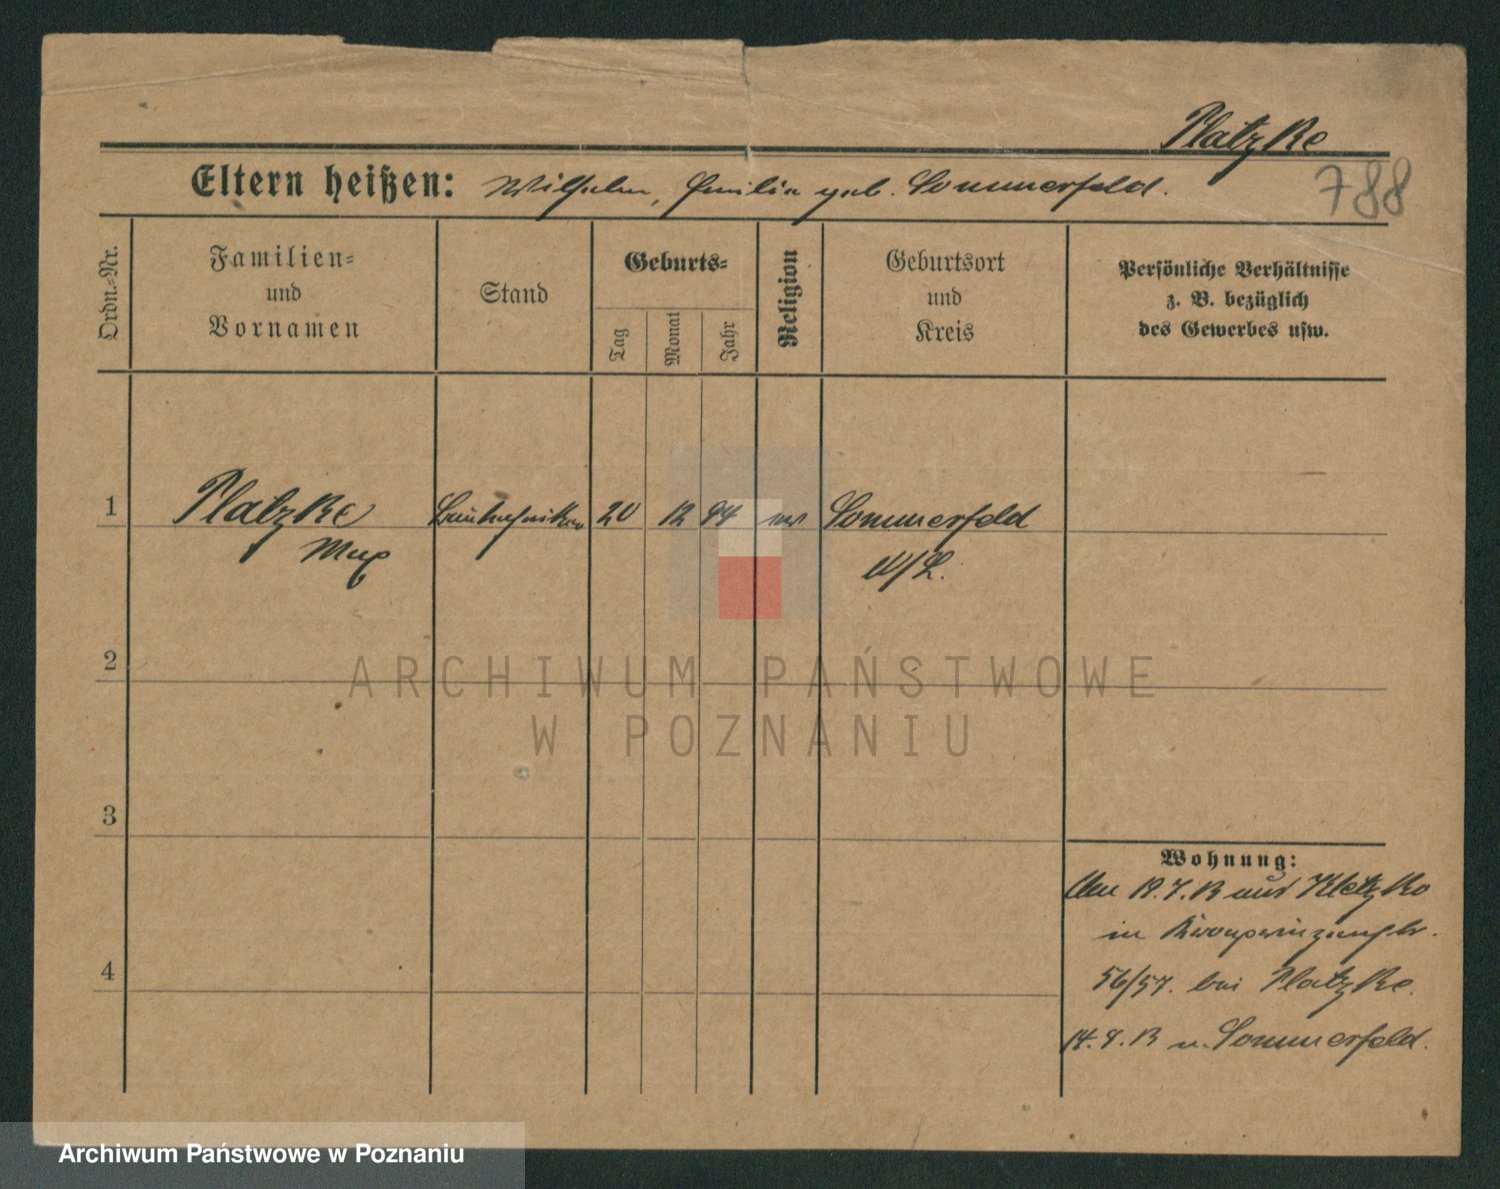 Platzke
Eltern heißen: Wilhelm, Emilie geb. Sommerfeld.
788
Ordn.-Nr.
Familien-
und
Vornamen
Stand
Geburts-
Tag
Monat
Jahr
Religion
Geburtsort
und
Kreis
Persönliche Verhältnisse
z. B. bezüglich
des Gewerbes usw.
1 Platzke Bautechniker 20 12 94 ev Sommerfeld
Max N/L.
2
3
4
Wohnung:
Am 19.7.13 aus Kletzko
in Kronprinzenstr.
56/57. bei Platzke.
14.8.13 n. Sommerfeld.
ARCHIWUM PAŃSTWOWE
W POZNANIU
Archiwum Państwowe w Poznaniu